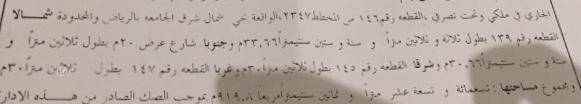 الجاري في ملكي وتحت تصرفي ،القطعه رقم ١٤٦ من المخطط ٢٣٤٧،الواقعة بحي شمال شرق الجامعه بالرياض والمحدودة شمالا
القطعه رقم ١٣٩ بطول ثلاثة و ثلاثين متراً و ستة و ستين سنتيمتراً ٣٣٫٦٦م وجنوبا شارع عرض ٢٠م بطول ثلاثين متراً و
ستة و ستين سنتيمتراً ٣٠٫٦٦م وشرقا القطعه رقم ١٤٥ بطول ثلاثين متراً ٣٠م وغربا القطعه رقم ١٤٧ بطول ثلاثين متراً ٣٠م
ومجموع مساحتها : تسعمائة و تسعة عشر متراً و ثمانين سنتيمتراً مربعاً ٩١٩٫٨م بموجب الصك الصادر من هذه الادارة